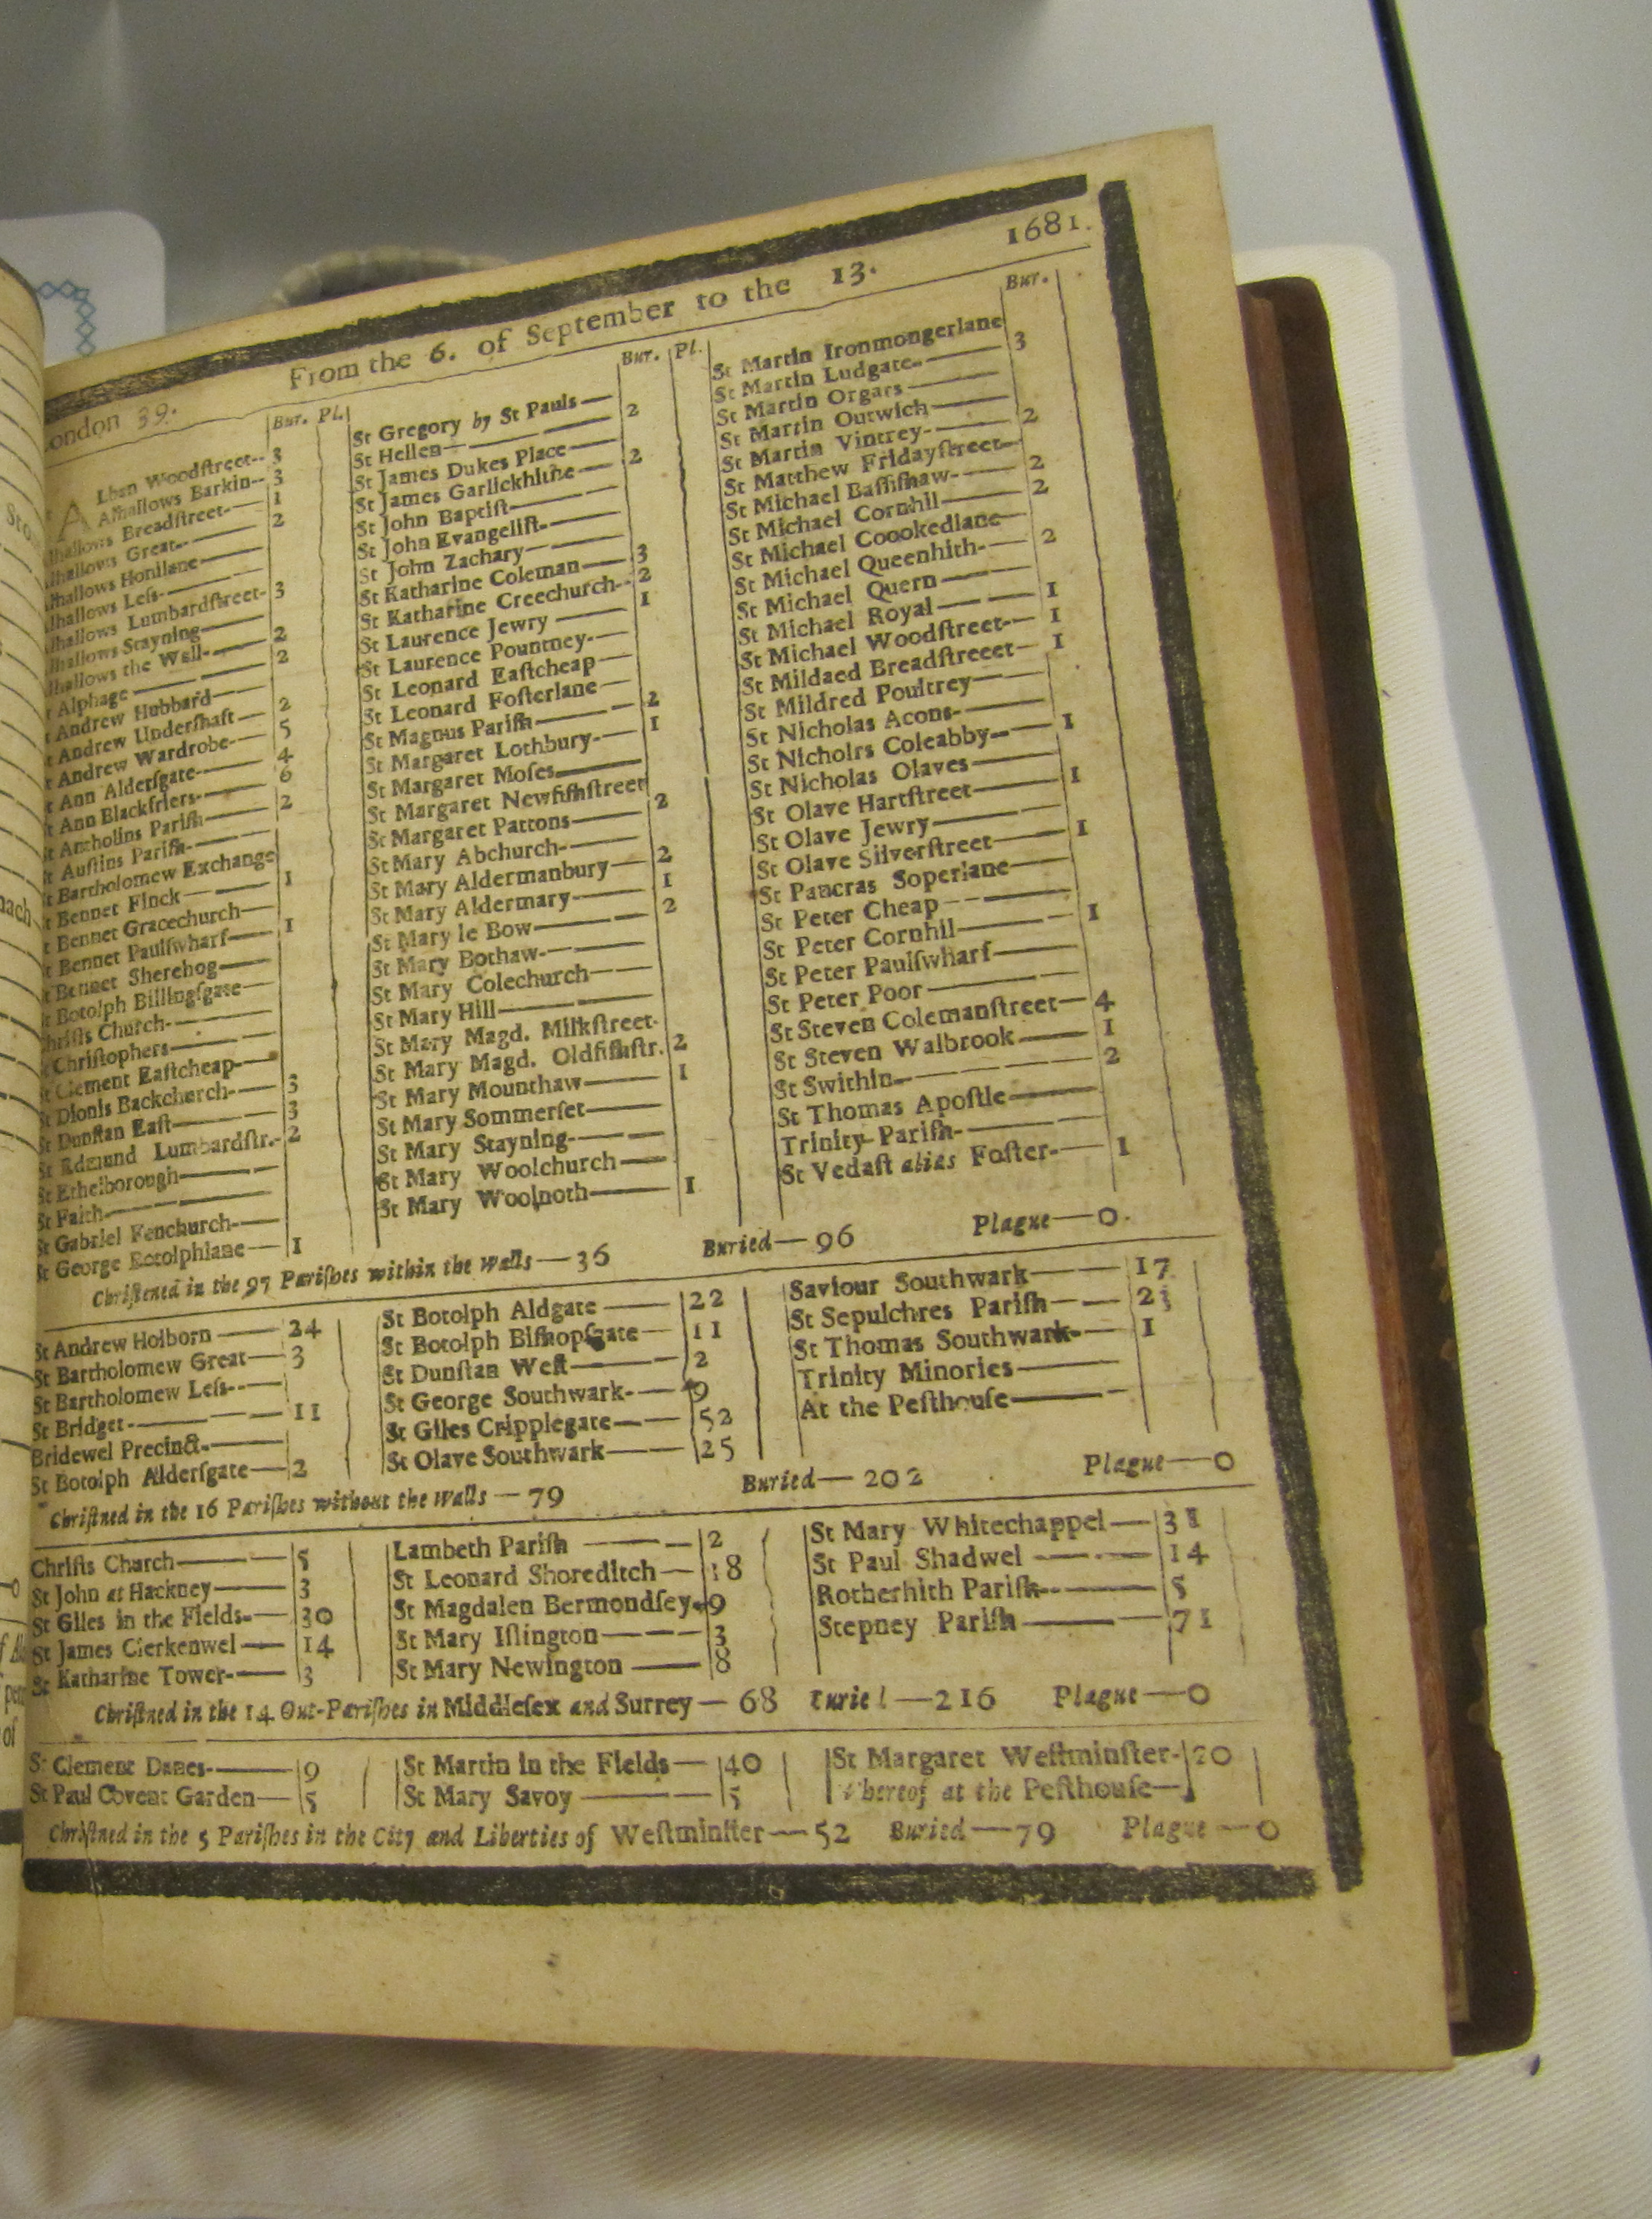 From the 6. of September to the 13. 1681.
ondon 39.
Bur. Pl.
Lban Woodſtreet-- 3
Alhallows Barkin-- 3
lhallows Breadſtreet-— 1
lhallows Great-- —— 2
lhallows Honilane——
lhallows Leſs-——
lhallows Lumbardſtreet- 3
lhallows Stayning——
lhallows the Wall-—— 2
t Alphage ———— 2
t Andrew Hubbard——
t Andrew Underſhaft — 2
t Andrew Wardrobe-— 5
t Ann Alderſgate-—— 4
t Ann Blackfriers-—— 6
t Antholins Pariſh—— 2
t Auſtins Pariſh-——
t Bartholomew Exchange
t Bennet Finck —— 1
t Bennet Gracechurch—
t Bennet Paulſwharf—— 1
t Bennet Sherehog——
t Botolph Billingſgate—
hriſts Church-———
t Chriſtophers———
St Clement Eaſtcheap-—
St Dionis Backchurch-— 3
St Dunſtan Eaſt——— 3
St Edmund Lumbardſtr.- 2
St Ethelborough———
St Faith-————
St Gabriel Fenchurch-—
St George Botolphlane— 1
Bur. Pl.
St Gregory by St Pauls —
St Hellen———— 2
St James Dukes Place——
St James Garlickhithe — 2
St John Baptiſt-———
St John Evangeliſt-——
St John Zachary———
St Katharine Coleman — 3
St Katharine Creechurch-- 2
St Laurence Jewry —— 1
St Laurence Pountney-—
St Leonard Eaſtcheap—
St Leonard Foſterlane—
St Magnus Pariſh——— 2
St Margaret Lothbury-— 1
St Margaret Moſes——
St Margaret Newfiſhſtreet
St Margaret Pattons—— 2
St Mary Abchurch-——
St Mary Aldermanbury— 2
St Mary Aldermary-—— 1
St Mary le Bow———— 2
St Mary Bothaw-———
St Mary Colechurch——
St Mary Hill————
St Mary Magd. Milkſtreet-
St Mary Magd. Oldfiſhſtr. 2
St Mary Mounthaw—— 1
St Mary Sommerſet——
St Mary Stayning-———
St Mary Woolchurch——
St Mary Woolnoth—— 1
Bur.
St Martin Ironmongerlane
St Martin Ludgate-—— 3
St Martin Orgars ——
St Martin Outwich——
St Martin Vintrey-—— 2
St Matthew Fridayſtreet—
St Michael Baſſiſhaw-— 2
St Michael Cornhil—— 2
St Michael Coookedlane—
St Michael Queenhith-— 2
St Michael Quern ———
St Michael Royal ——— 1
St Michael Woodſtreet-— 1
St Mildaed Breadſtreeet— 1
St Mildred Poultrey——
St Nicholas Acons-——
St Nicholrs Coleabby-— 1
St Nicholas Olaves——
St Olave Hartſtreet—— 1
St Olave Jewry———
St Olave Silverſtreet—— 1
St Pancras Soperlane—
St Peter Cheap -———
St Peter Cornhil——— 1
St Peter Paulſwharf——
St Peter Poor ————
St Steven Colemanſtreet— 4
St Steven Walbrook—— 1
St Swithin-———— 2
St Thomas Apoſtle——
Trinity Pariſh-———
St Vedaſt alias Foſter-— 1
Chriſtened in the 97 Pariſhes within the walls — 36 Buried — 96 Plague — 0.
St Andrew Holborn —— 24
St Bartholomew Great— 3
St Bartholomew Leſs-—
St Bridget -———— 11
Bridewel Precinct-——
St Botolph Alderſgate— 2
St Botolph Aldgate —— 22
St Botolph Biſhopſgate— 11
St Dunſtan Weſt——— 2
St George Southwark-— 9
St Giles Cripplegate—— 52
St Olave Southwark—— 25
Saviour Southwark—— 17
St Sepulchres Pariſh——
St Thomas Southwark-— 1
Trinity Minories———
At the Peſthouſe———
Chriſtned in the 16 Pariſhes without the walls — 79 Buried — 202 Plague — 0
Chriſts Church——— 5
St John at Hackney—— 3
St Giles in the Fields-— 30
St James Clerkenwel — 14
St Katharine Tower-— 3
Lambeth Pariſh ——— 2
St Leonard Shoreditch — 18
St Magdalen Bermondſey- 9
St Mary Iſlington——— 3
St Mary Newington —— 8
St Mary Whitechappel— 31
St Paul Shadwel ——— 14
Rotherhith Pariſh-—— 5
Stepney Pariſh ——— 71
Chriſtned in the 14 Out-Pariſhes in Middleſex and Surrey — 68 Buried — 216 Plague — 0
St Clement Danes-—— 9
St Paul Covent Garden— 5
St Martin in the Fields — 40
St Mary Savoy ——— 5
St Margaret Weſtminſter- 20
Whereof at the Peſthouſe—
Chriſtned in the 5 Pariſhes in the City and Liberties of Weſtminſter — 52 Buried — 79 Plague — 0